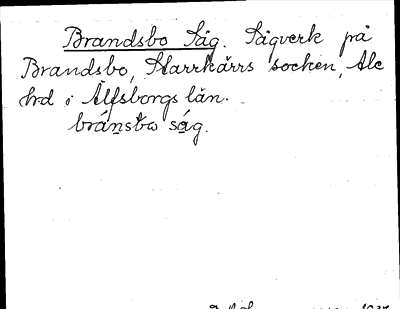 Brandsbo Såg. Sågverk på
Brandsbo, Starrkärrs socken, Ale
hrd i Älfsborgs län.
bránsbω såg.